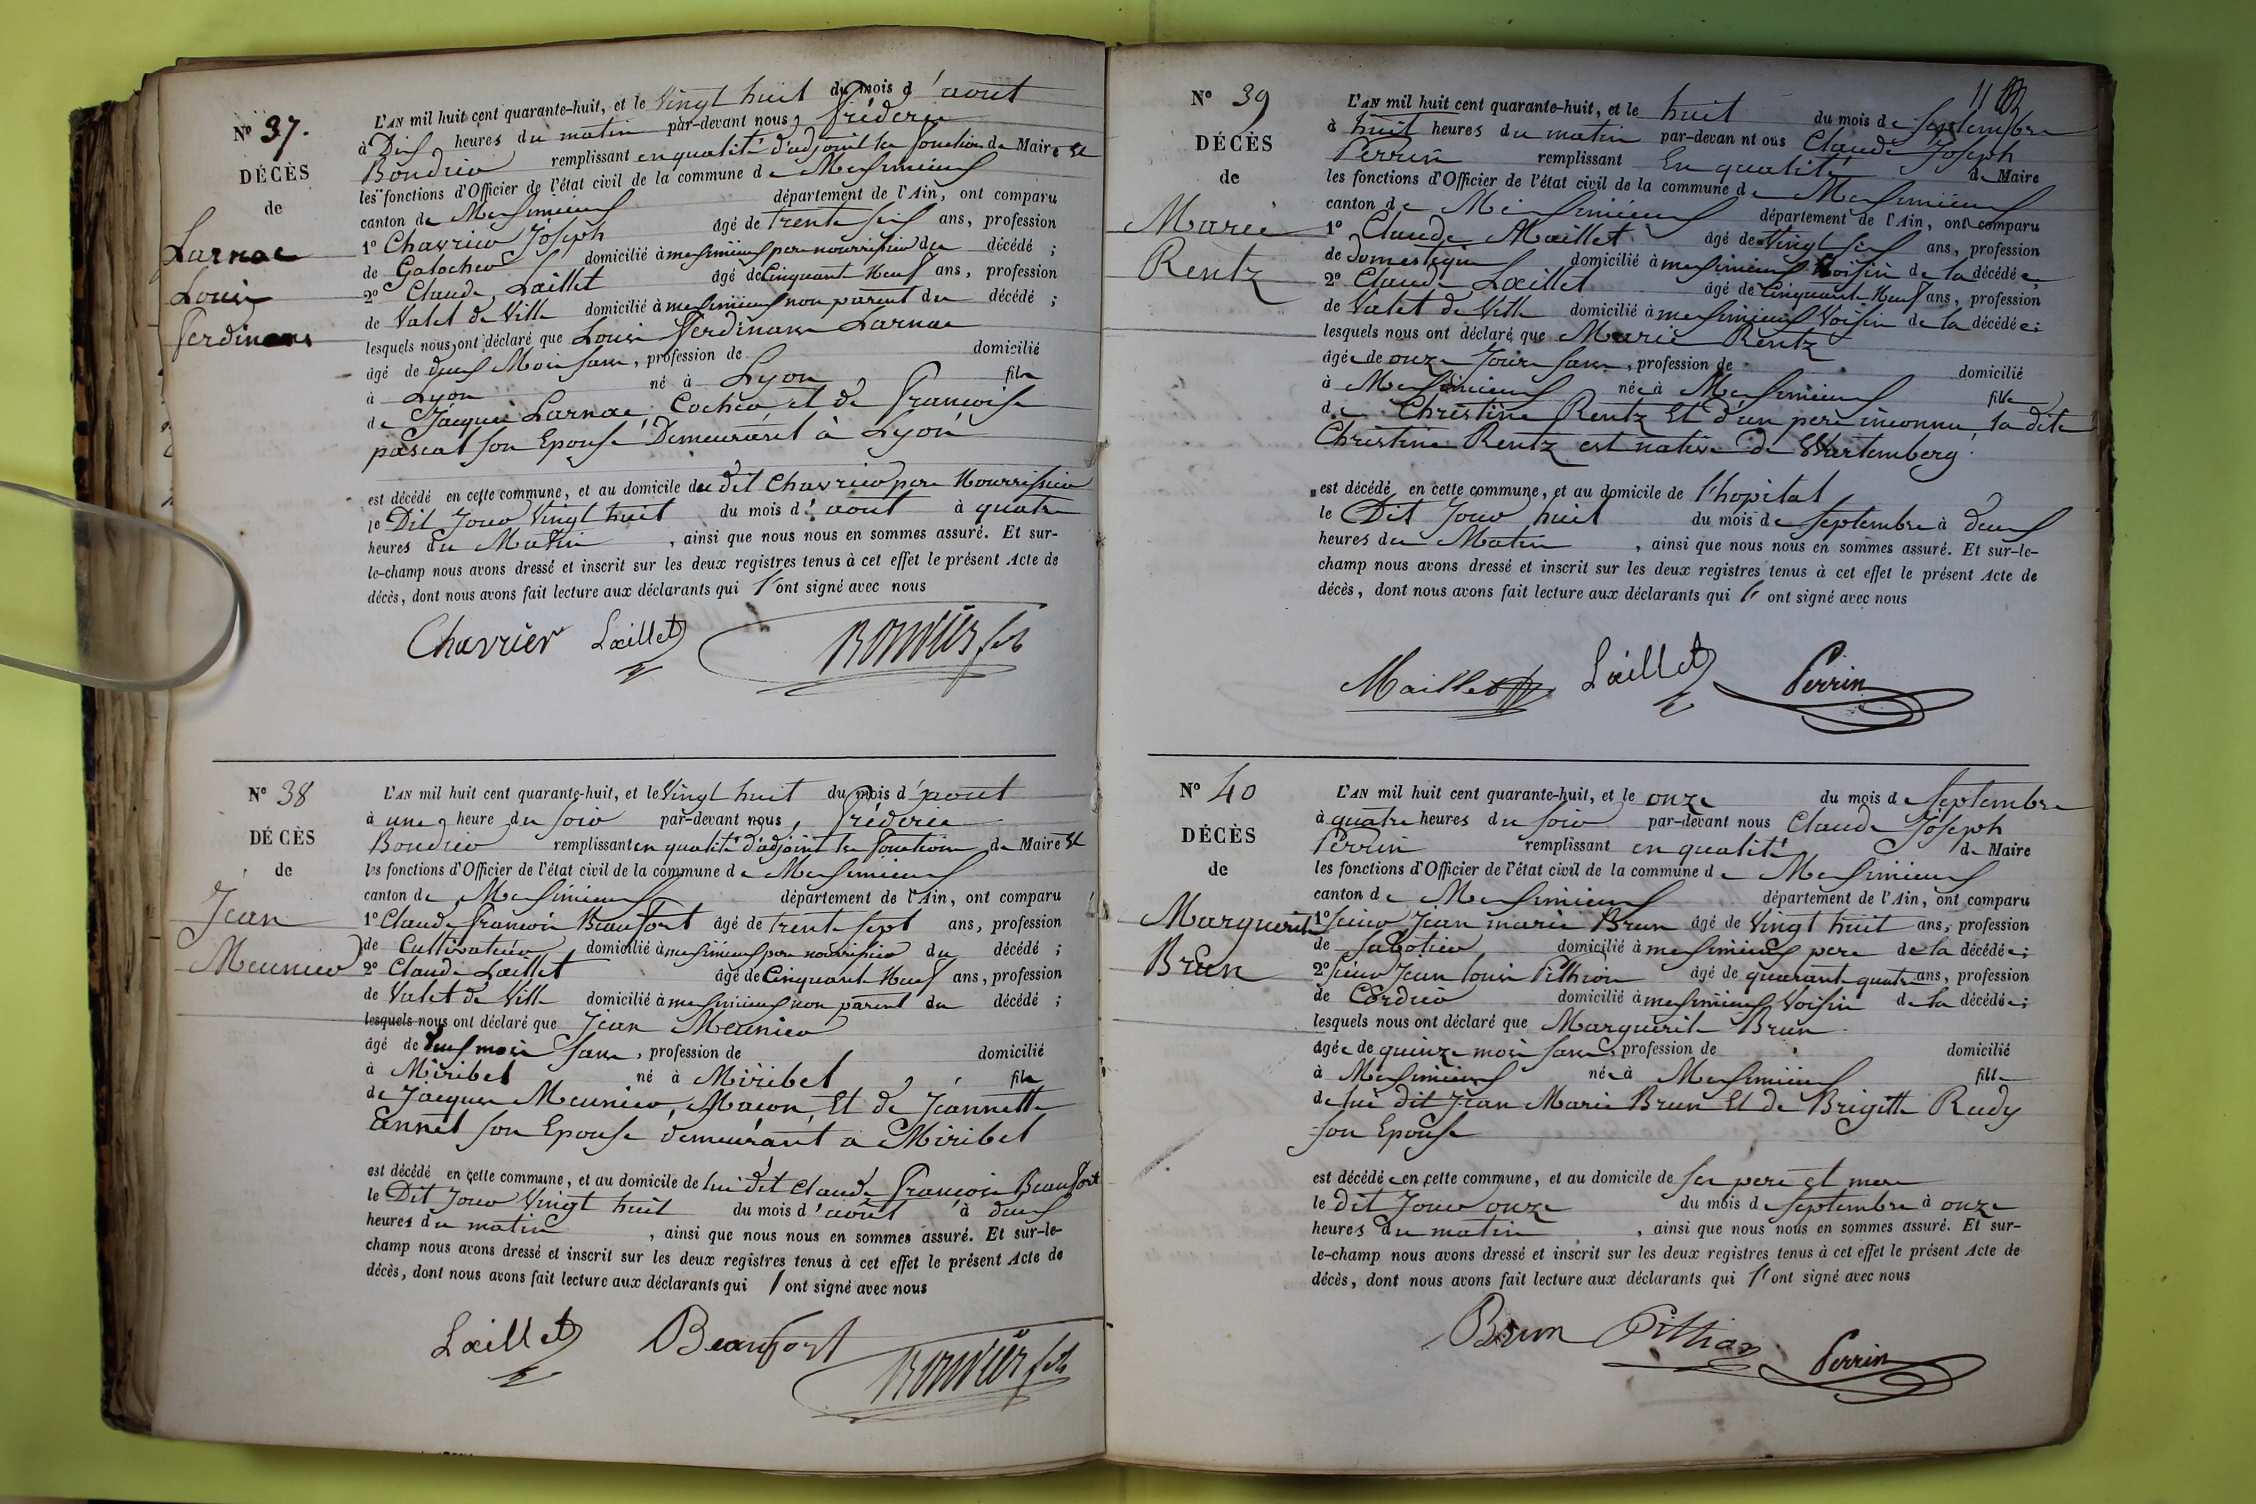 N° 37.
DÉCÈS
de
Larnac
Louis
Ferdinand
L'AN mil huit cent quarante-huit, et le Vingt huit du mois d'aout
à Dix heures du matin par-devant nous, Fréderic
Bouvier remplissant en qualité d'adjoint les fonctions de Maire et
les fonctions d'Officier de l'état civil de la commune de Meximieux
canton de Meximieux département de l'Ain, ont comparu
1° Chavrier Joseph âgé de trente six ans, profession
de Galocher domicilié à meximieux pere nourrissier du décédé ;
2° Claude Laillet âgé de Cinquante Neuf ans, profession
de Valet de Ville domicilié à meximieux non parent du décédé ;
lesquels nous ont déclaré que Louis Ferdinand Larnac
âgé de deux Mois sans, profession de domicilié
à Lyon né à Lyon fils
de Jacques Larnac, Cocher et de Françoise
pascal son Epouse Demeurant à Lyon
est décédé en cette commune, et au domicile du dit Chavrier pere Nourrissier
le Dit Jour Vingt huit du mois d'aout à quatre
heures du Matin, ainsi que nous nous en sommes assuré. Et sur-
le-champ nous avons dressé et inscrit sur les deux registres tenus à cet effet le présent Acte de
décès, dont nous avons fait lecture aux déclarants qui l'ont signé avec nous
Chavrier Laillet Bouvier fils
N° 38
DÉCÈS
de
Jean
Meunier
L'AN mil huit cent quarante-huit, et le Vingt huit du mois d'aout
à une heure du soir par-devant nous, Fréderic
Bouvier remplissant en qualité d'adjoint les fonctions de Maire et
les fonctions d'Officier de l'état civil de la commune de Meximieux
canton de Meximieux département de l'Ain, ont comparu
1° Claude françois Beaufort âgé de trente sept ans, profession
de Cultivateur domicilié à meximieux pere nourrissier du décédé ;
2° Claude Laillet âgé de Cinquante Neuf ans, profession
de Valet de Ville domicilié à meximieux non parent du décédé ;
lesquels nous ont déclaré que Jean Meunier
âgé de deux mois sans, profession de domicilié
à Miribel né à Miribel fils
de Jacques Meunier, Maçon, Et de Jeannette
annet son Epouse demeurant à Miribel
est décédé en cette commune, et au domicile de lui dit Claude François Beaufort
le Dit Jour Vingt huit du mois d'aout à deux
heures du matin, ainsi que nous nous en sommes assuré. Et sur-le-
champ nous avons dressé et inscrit sur les deux registres tenus à cet effet le présent Acte de
décès, dont nous avons fait lecture aux déclarants qui l'ont signé avec nous
Laillet Beaufort Bouvier fils
N° 39
DÉCÈS
de
Marie
Rentz
L'AN mil huit cent quarante-huit, et le huit du mois de septembre
à huit heures du matin par-devan nt ous Claude Joseph
Perrin remplissant En qualité de Maire
les fonctions d'Officier de l'état civil de la commune de Meximieux
canton de Meximieux département de l'Ain, ont comparu
1° Claude Maillet âgé de Vingt six ans, profession
de domestique domicilié à meximieux Voisin de la décédée ;
2° Claude Laillet âgé de Cinquante Neuf ans, profession
de Valet de Ville domicilié à meximieux Voisin de la décédée ;
lesquels nous ont déclaré que Marie Rentz
âgée de onze Jours sans, profession de domicilié
à Meximieux née à Meximieux fille
de Christine Rentz Et d'un pere inconnu, la dite
Christine Rentz est native de Wurtemberg.
est décédé en cette commune, et au domicile de l'hopital
le Dit Jour huit du mois de septembre à deux
heures du Matin, ainsi que nous nous en sommes assuré. Et sur-le-
champ nous avons dressé et inscrit sur les deux registres tenus à cet effet le présent Acte de
décès, dont nous avons fait lecture aux déclarants qui l'ont signé avec nous
Maillet Laillet Perrin
N° 40
DÉCÈS
de
Marguerite
Brun
L'AN mil huit cent quarante-huit, et le onze du mois de septembre
à quatre heures du soir par-devant nous Claude Joseph
Perrin remplissant en qualité de Maire
les fonctions d'Officier de l'état civil de la commune de Meximieux
canton de Meximieux département de l'Ain, ont comparu
1° sieur Jean marie Brun âgé de Vingt huit ans, profession
de Sabotier domicilié à meximieux pere de la décédée ;
2° sieur Jean louis Pithion âgé de quarante quatre ans, profession
de Cordier domicilié à meximieux Voisin de la décédée ;
lesquels nous ont déclaré que Marguerite Brun
âgée de quinze mois sans, profession de domicilié
à Meximieux née à Meximieux fille
de lui dit Jean Marie Brun Et de Brigitte Rudy
son Epouse
est décédée en cette commune, et au domicile de ses pere et mere
le dit Jour onze du mois de septembre à onze
heures du matin, ainsi que nous nous en sommes assuré. Et sur-
le-champ nous avons dressé et inscrit sur les deux registres tenus à cet effet le présent Acte de
décès, dont nous avons fait lecture aux déclarants qui l'ont signé avec nous
Brun Pithion Perrin